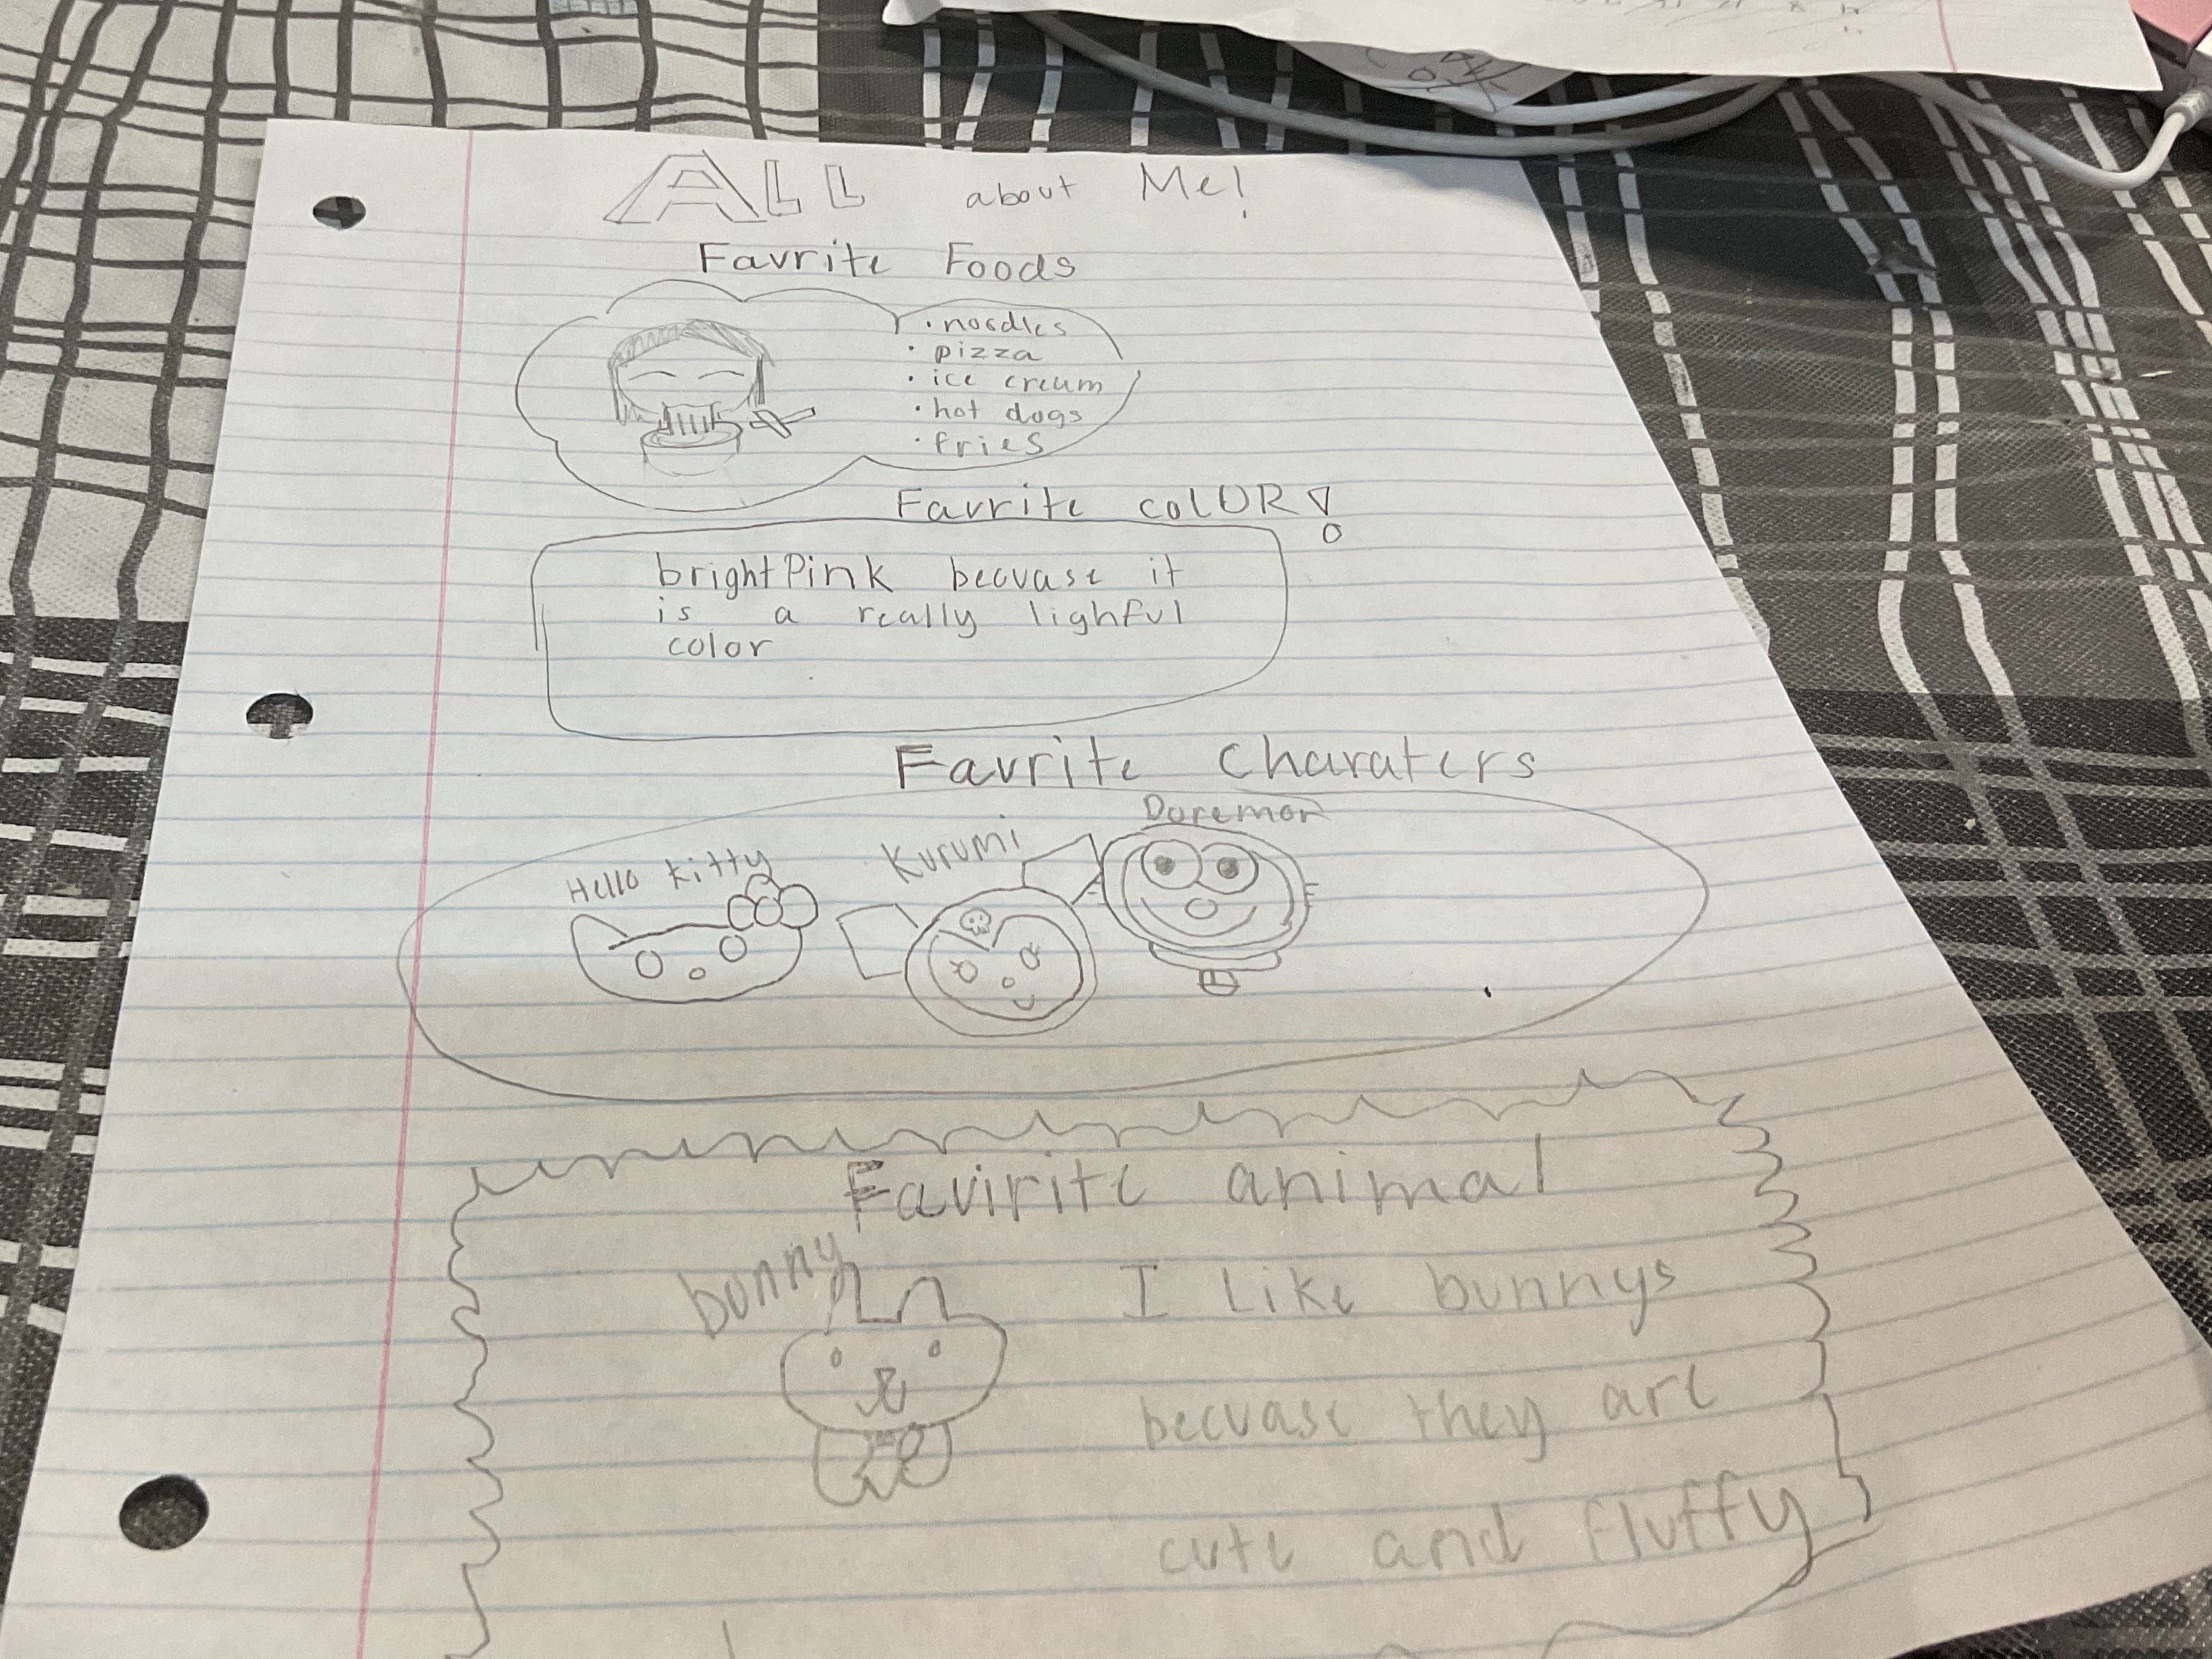 ALL about Me!
Favrite Foods
• noodles
• pizza
• ice cream
• hot dogs
• fries
Favrite colOR!
brightPink becuase it
is a really lighful
color
Favrite Charaters
Hello Kitty
Kurumi
Doremon
Favirite animal
bunny
I Like bunnys
becuase they are
cute and fluffy